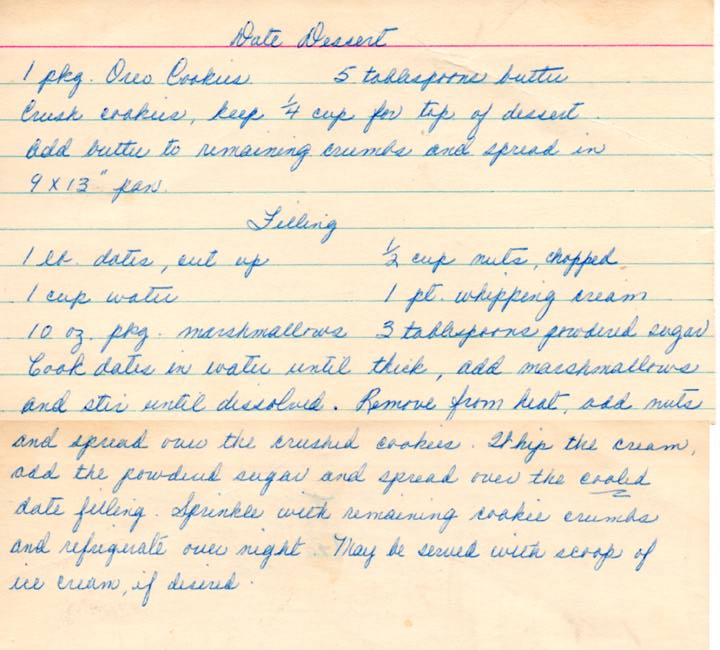 Date Dessert
1 pkg. Oreo Cookies 5 tablespoons butter
Crush cookies, keep 1/4 cup for top of dessert
Add butter to remaining crumbs and spread in
9 x 13" pan.
Filling
1 lb. dates, cut up 1/2 cup nuts, chopped
1 cup water 1 pt. whipping cream
10 oz. pkg. marshmallows 3 tablespoons powdered sugar
Cook dates in water until thick, add marshmallows
and stir until dissolved. Remove from heat, add nuts
and spread over the crushed cookies. Whip the cream,
add the powdered sugar and spread over the cooled
date filling. Sprinkle with remaining cookie crumbs
and refrigerate over night. May be served with scoop of
ice cream, if desired.